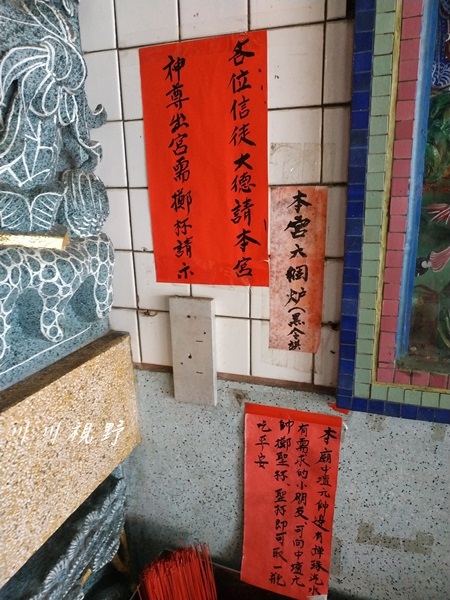 各位信徒大德請本宮
神尊出宮需擲杯請示
本宮大綱炉(黑令旗
本廟中壇元帥邊有蟬緣汽水
有需求的小朋友、可向中壇元
帥擲聖杯、聖杯即可取一瓶
吃平安
川川視野